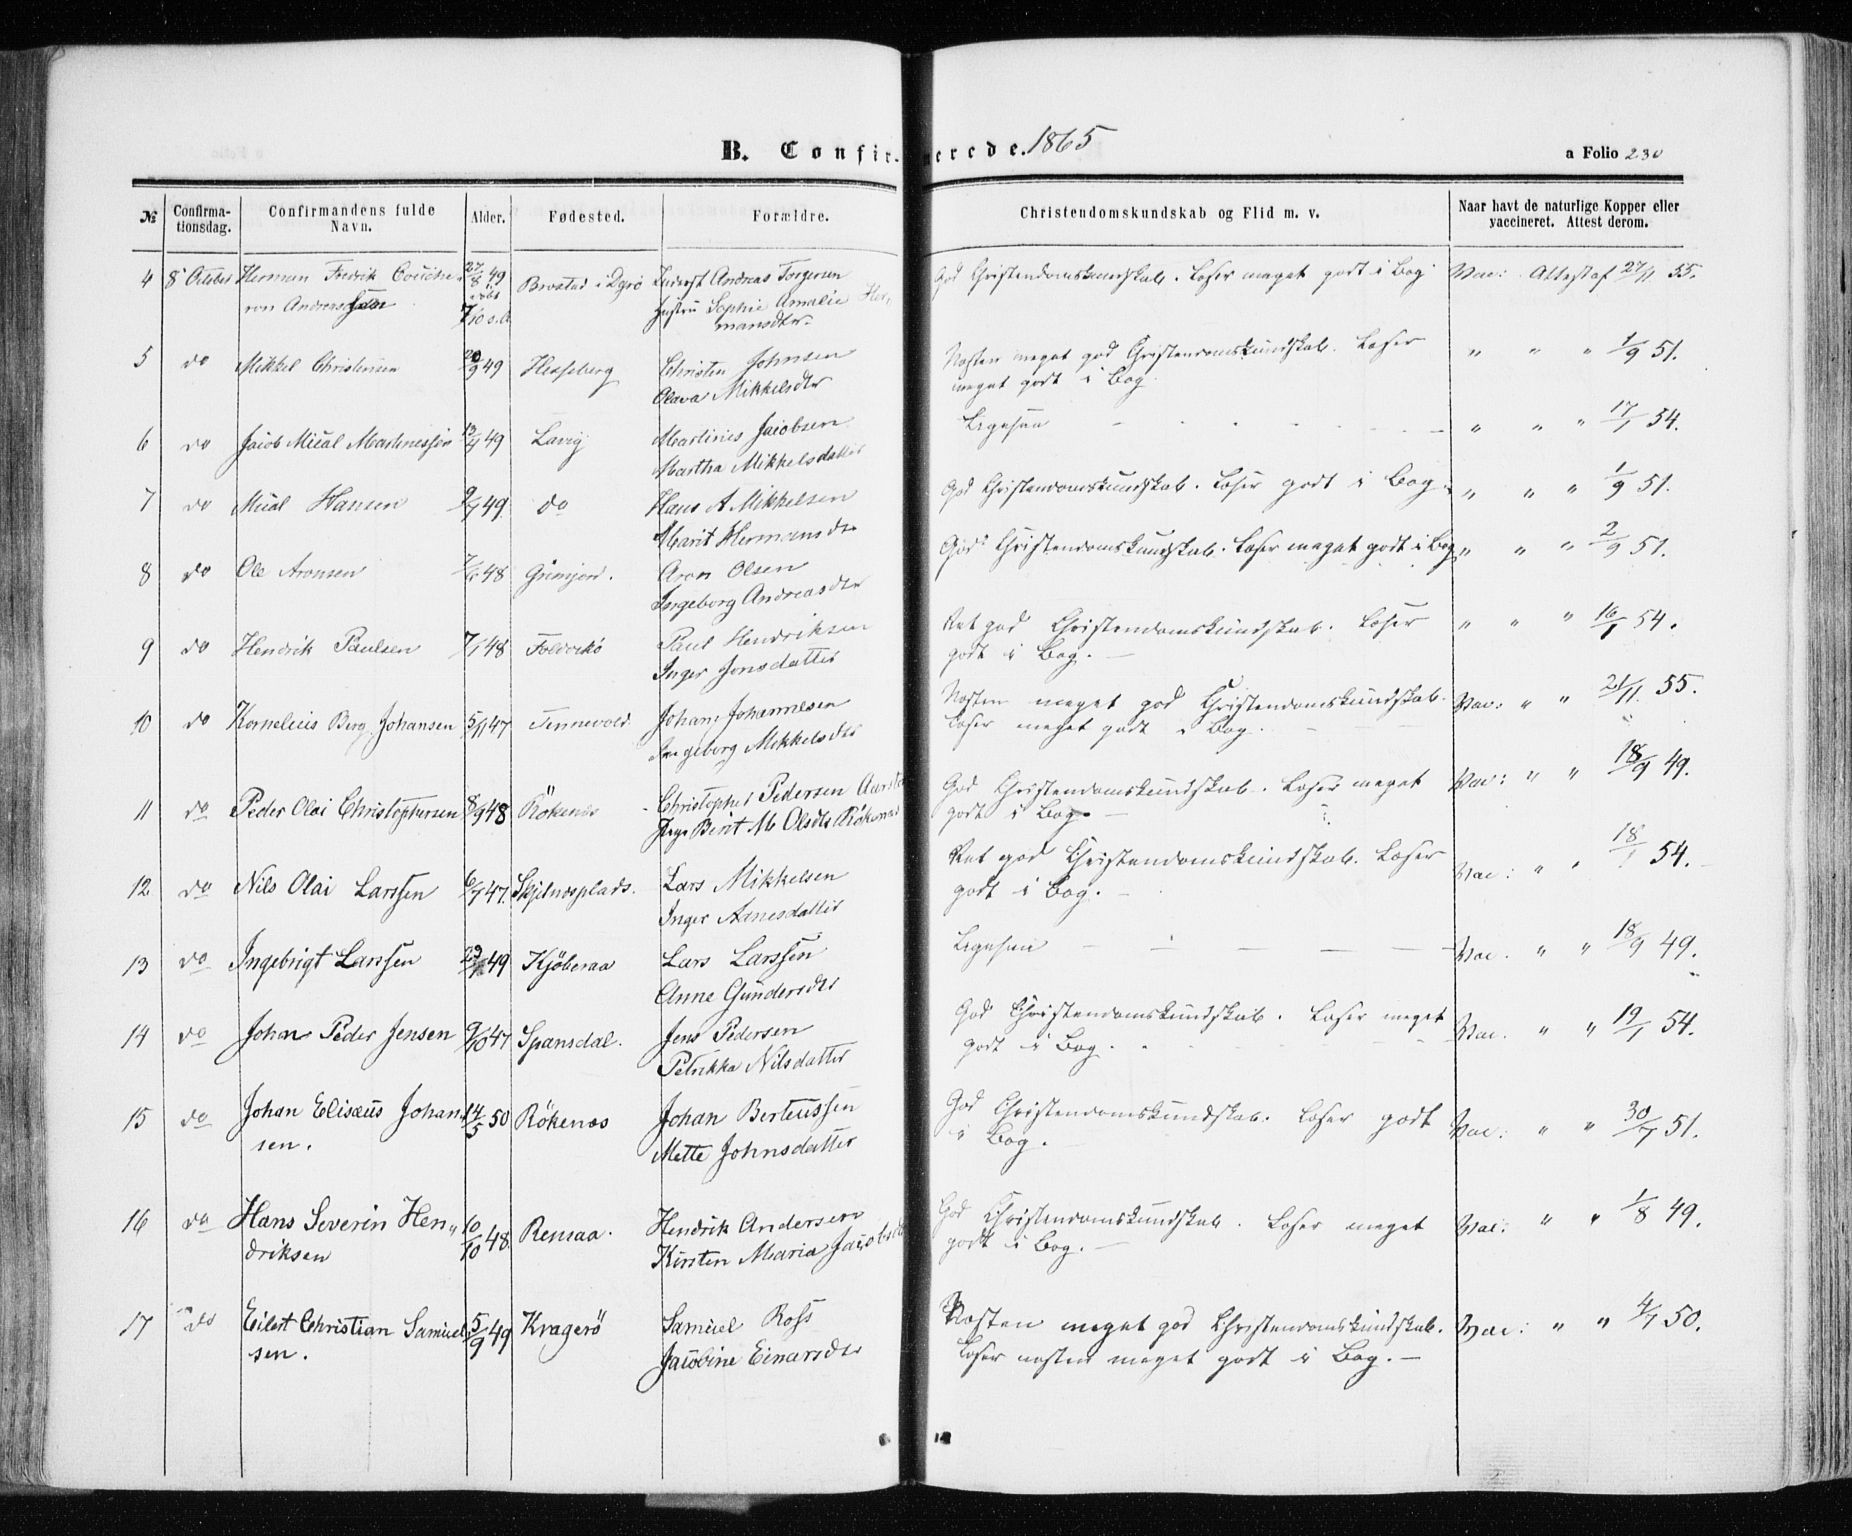 B. Confirmerede. 1865
a Folio 230
№ Confirmationsdag. Confirmandens fulde Navn. Alder. Fødested. Forældre. Christendomskundskab og Flid m. v. Naar havt de naturlige Kopper eller vaccineret. Attest derom.
4 8' October Herman Fredrik Andreassen 27/8 49 Brostad i Dyrö Andreas Torgersen God Christendomskundskab. Læser meget godt i Bog Vac: Attest af 27/11 55.
7/10 s.A. Hustru Sophie Amalie Hermansdtr
5 do Mikkel Christensen 20/9 49 Hesseberg Christen Johnsen Næsten meget god Christendomskundskab. Læser " " " 1/9 51.
Olava Mikkelsdtr meget godt i Bog.
6 do Jacob Mical Martinessen 49 Lavig Martines Jacobsen Ligesaa " " " 17/1 54.
Martha Mikkelsdatter
7 do Mical Hansen 49. do Hans A Mikkelsen God Christendomskundskab. Læser godt i Bog " " " 1/9 51.
Marit Hermansdtr
8 do Ole Aronsen 48 Grimjord. Aron Olsen God Christendomskundskab. Læser meget godt i Bog " " " 2/9 51.
Ingeborg Andreasdtr
9 do Hendrik Paulsen 7/1 48 Foldvikö Paul Hendriksen Ret god Christendomskundskab. Læser " " " 16/1 54.
Inger Jonsdatter godt i Bog. –
10 do Kornelius Berg Johansen 5/11 47 Tennevold. Johan Johannesen Næsten meget god Christendomskundskab. Vac: " " 21/11. 55.
Ingeborg Mikkelsdtr Læser meget godt i Bog.
11 do Peder Olai Christophersen 8/9 48 Rökenes Christopher Pedersen God Christendomskundskab. Læser meget Vac: " " 18/9 49.
Berit M. Olsdtr Rökenes godt i Bog. –
12 do Nils Olai Larssen 6/7 47. Skjelnesplads. Lars Mikkelsen Ret god Christendomskundskab. Læser Vac: " " 18/1 54.
Inger Arnesdatter godt i Bog. –
13 do Ingebrigt Larssen 49 Kjöberaa Lars Larssen Ligesaa Vac. " " 18/9 49.
Anne Gundersdtr
14 do Johan Peder Jensen 9/10 47 Spansdal. Jens Pedersen God Christendomskundskab. Læser meget Vac. " " 19/1 54.
Petrikka Nilsdatter godt i Bog.
15 do Johan Elisæus Johan- 14/5 50 Rökenes Johan Berteussen God Christendomskundskab. Læser godt Vac: " " 30/7 51.
sen. Mette Johnsdatter i Bog.
16 do Hans Severin Hen- 10/10 48. Rensaa. Hendrik Andersen God Christendomskundskab. Læser meget Vac: " " 1/8 49.
driksen Kirsten Maria Jacobsdtr godt i Bog. –
17 do Eilert Christian Samuel- 5/9 49 Kragerö Samuel Ross Næsten meget god Christendomskundskab. Vac: " " 4/7 50.
sen. Jacobine Einarsdtr Læser næsten meget godt i Bog. –